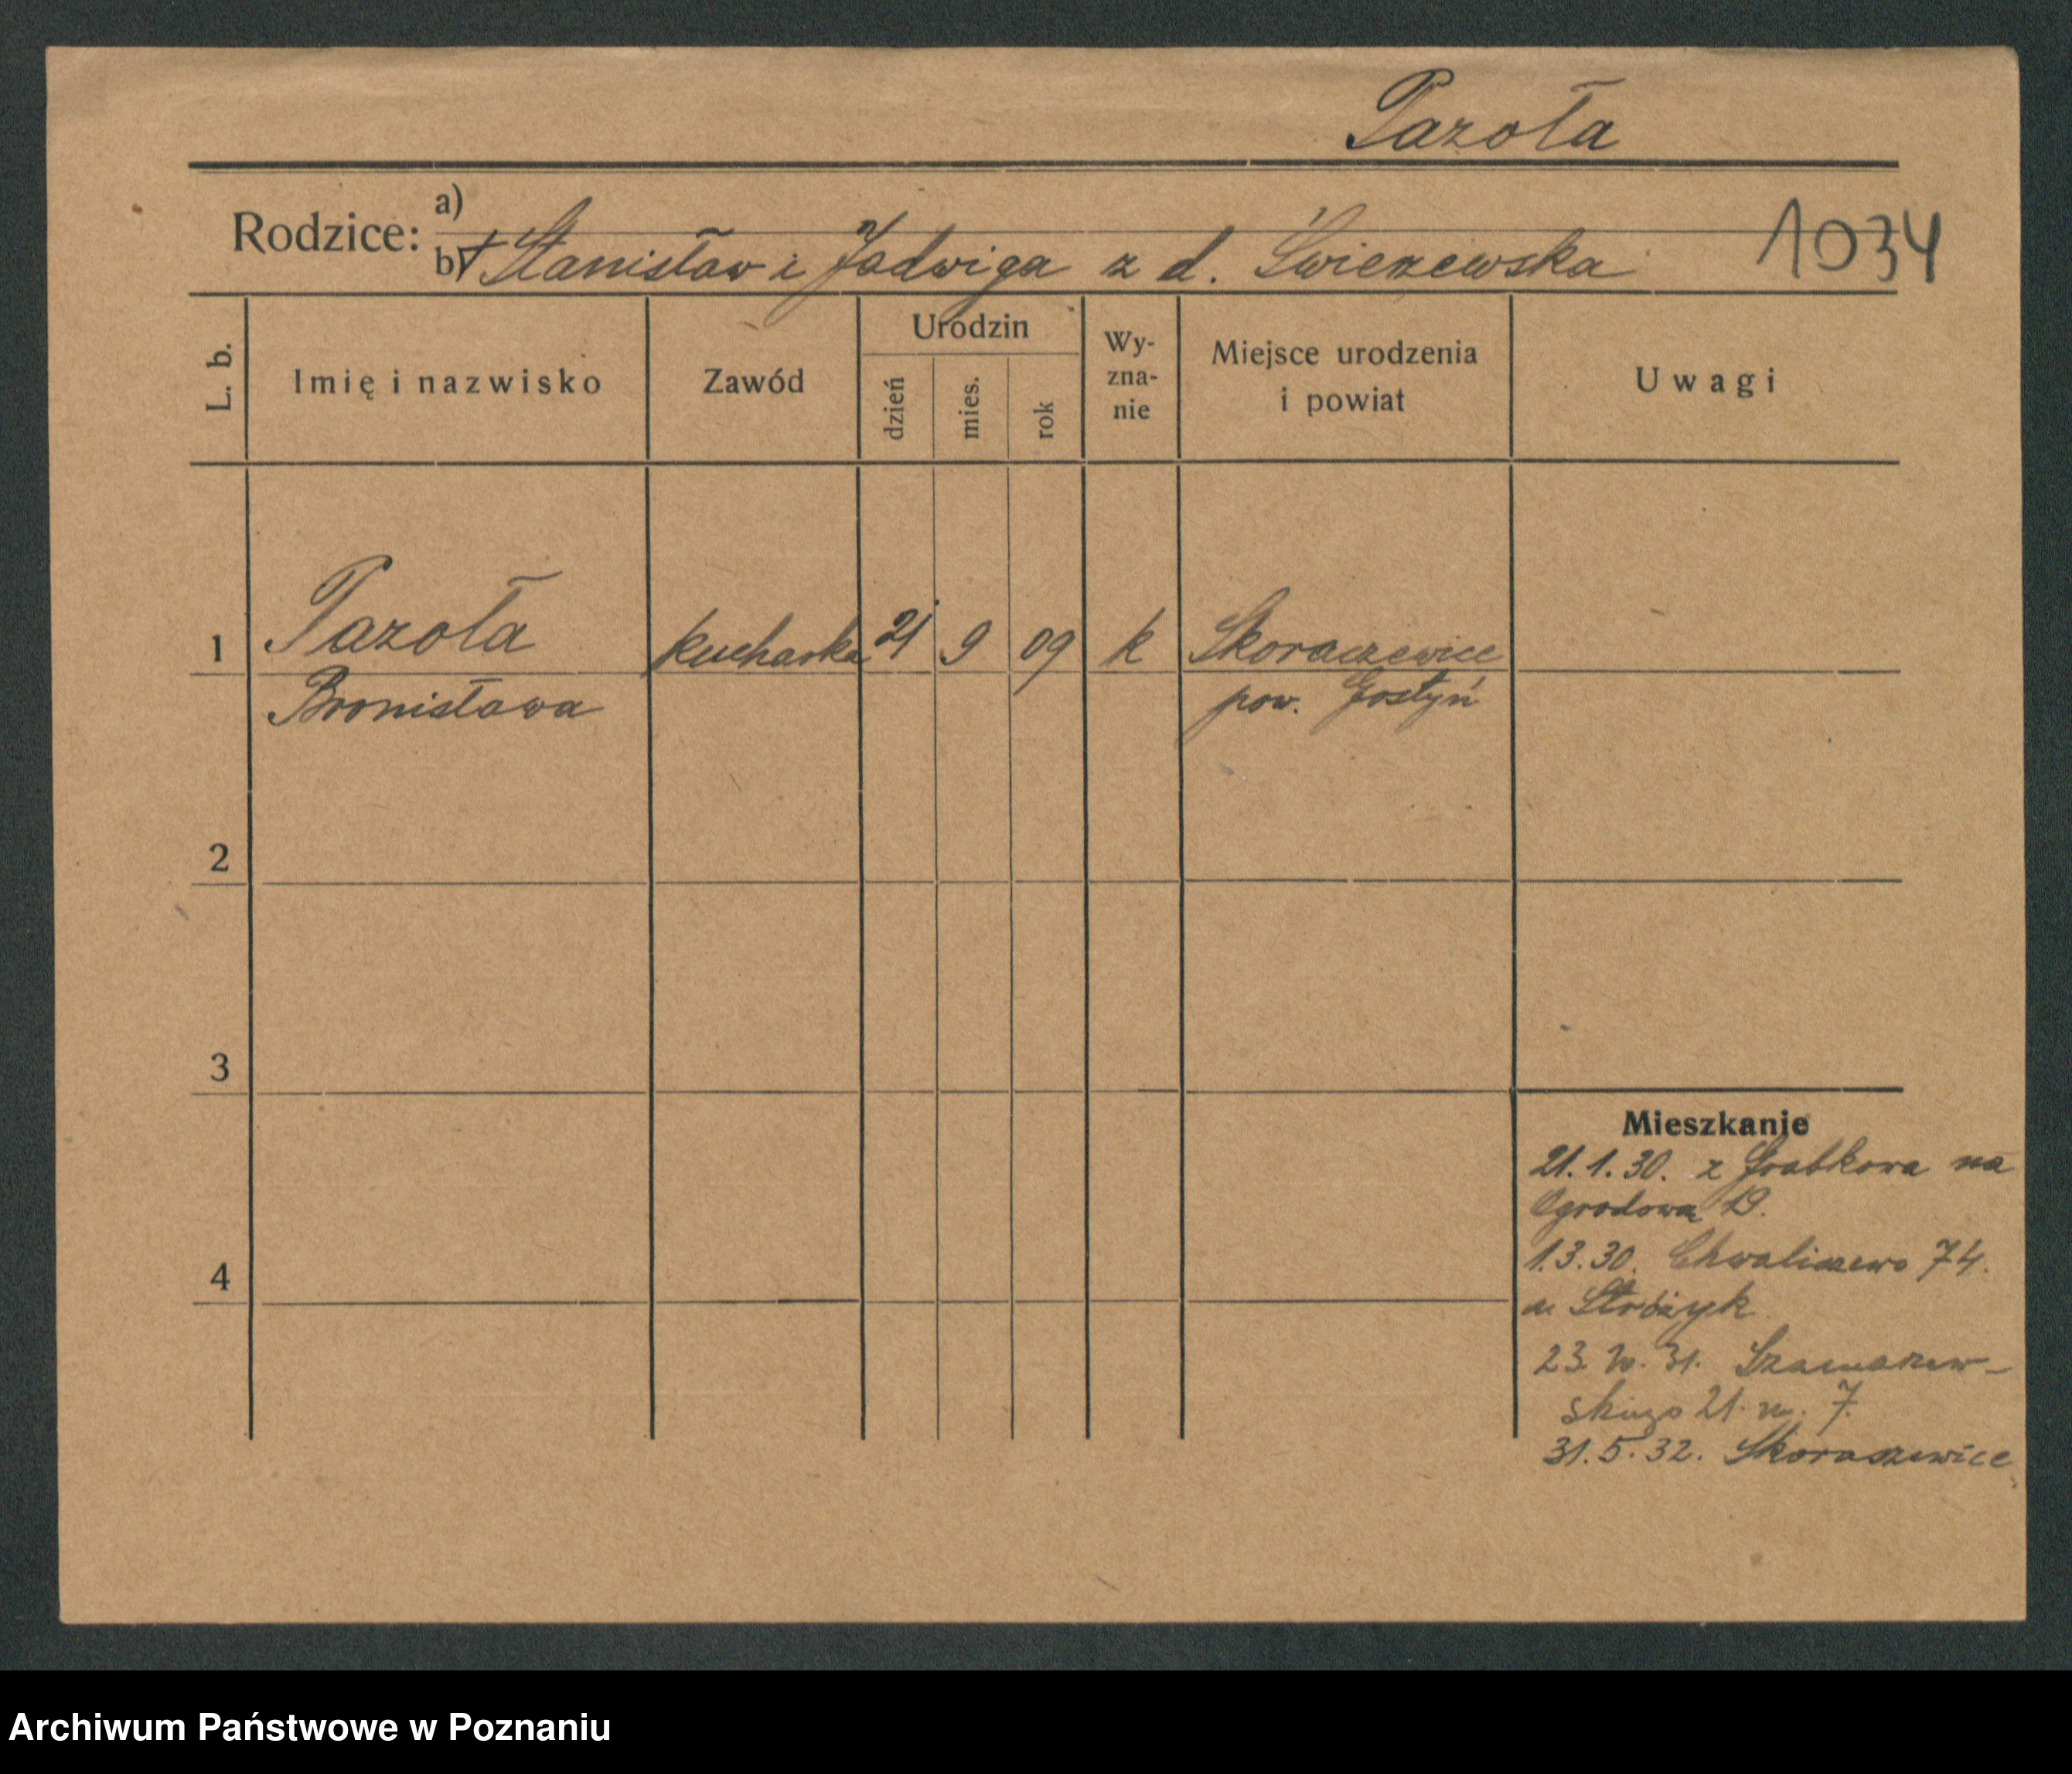 Pazoła
Rodzice: a)
b) † Stanisław i Jadwiga z d. Świerzewska 1034
L. b. Imię i nazwisko Zawód Urodzin dzień mies. rok Wy-zna-nie Miejsce urodzenia i powiat Uwagi
1 Pazoła kucharka 21 9 09 k Skoraczewice
Bronisława pow. Gostyń
2
3
Mieszkanie
21.1.30. z Grabkowa na
Ogrodowa 19.
1.3.30. Chwaliszewo 74.
4
u Stróżyk
23. 31. Szamarzew-
skiego 21. m. 7.
31.5.32. Skoraszewice
Archiwum Państwowe w Poznaniu